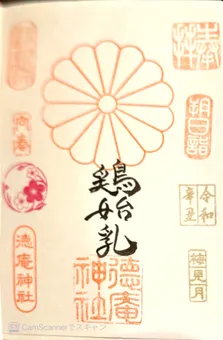 奉拝
朔日詣
令和
辛丑
梅見月
鶏始乳
徳庵
神社
徳庵神社
CamScannerでスキャン